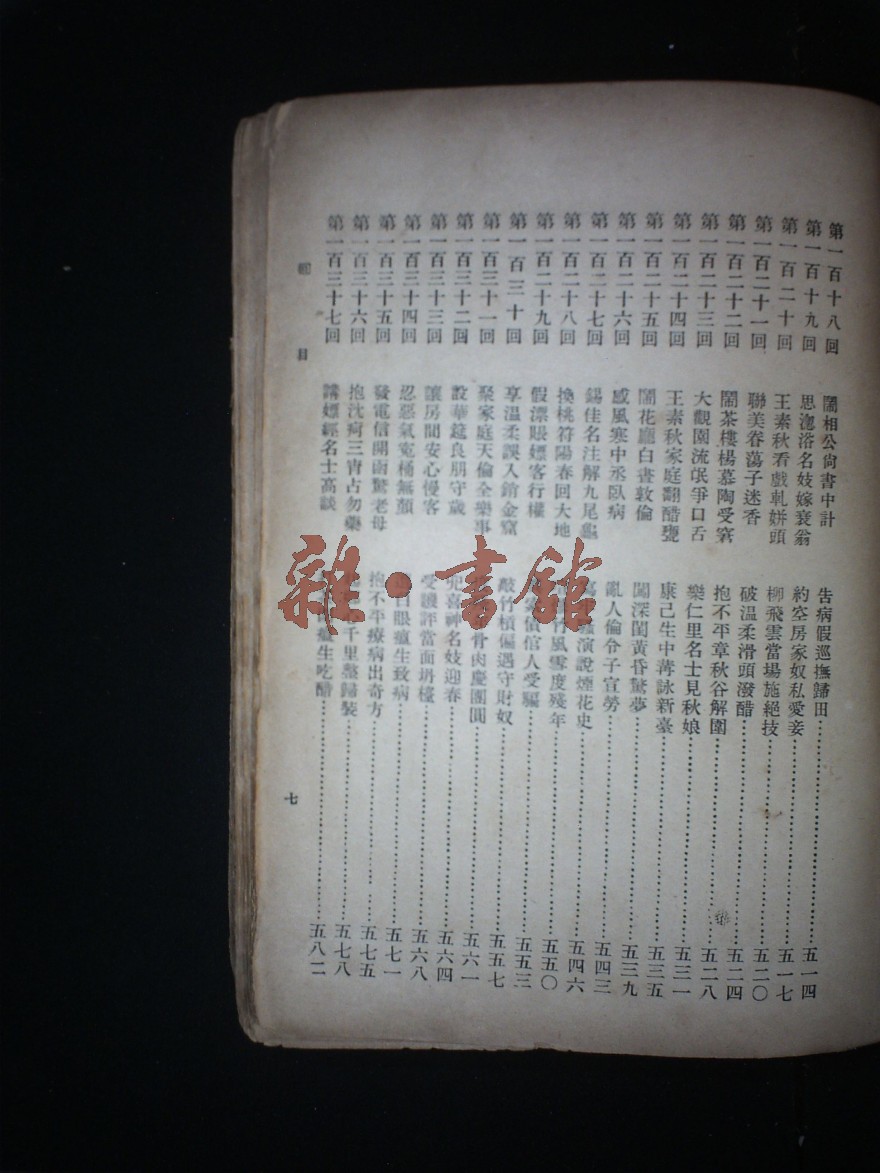 第一百十八回 鬧相公尚書中計 告病假巡撫歸田 五一四
第一百十九回 思溫浴名妓嫁衰翁 約空房家奴私愛妾 五一七
第一百二十回 王素秋看戲軋姘頭 柳飛雲當場施絕技 五二〇
第一百二十一回 聯美眷蕩子迷香 破溫柔滑頭潑醋 五二四
第一百二十二回 鬧茶樓楊慕陶受窘 抱不平章秋谷解圍 五二八
第一百二十三回 大觀園流氓爭口舌 樂仁里名士見秋娘 五三一
第一百二十四回 王素秋家庭翻醋甕 康己生中冓詠新臺 五三五
第一百二十五回 鬧花廳白晝敦倫 鬧深閨黃昏驚夢 五三九
第一百二十六回 感風寒中丞臥病 亂人倫令子宣勞 五四三
第一百二十七回 錫佳名注解九尾龜 演說煙花史 五四六
第一百二十八回 換桃符陽春回大地 風雪度殘年 五五〇
第一百二十九回 假漂賬嫖客行權 債倌人受騙 五五三
第一百三十回 享溫柔誤入銷金窟 敲竹槓偏遇守財奴 五五七
第一百三十一回 聚家庭天倫全樂事 骨肉慶團圓 五六一
第一百三十二回 設華筵良朋守歲 兜喜神名妓迎春 五六四
第一百三十三回 讓房間安心慢客 受譏評當面坍檯 五六八
第一百三十四回 忍惡氣冤桶無顏 白眼瘟生致病 五七一
第一百三十五回 發電信開函驚老母 抱不平療病出奇方 五七五
第一百三十六回 抱沈疴三宵占勿藥 千里整歸裝 五七八
第一百三十七回 講嫖經名士高談 瘟生吃醋 五八二
目
七
雜·書館